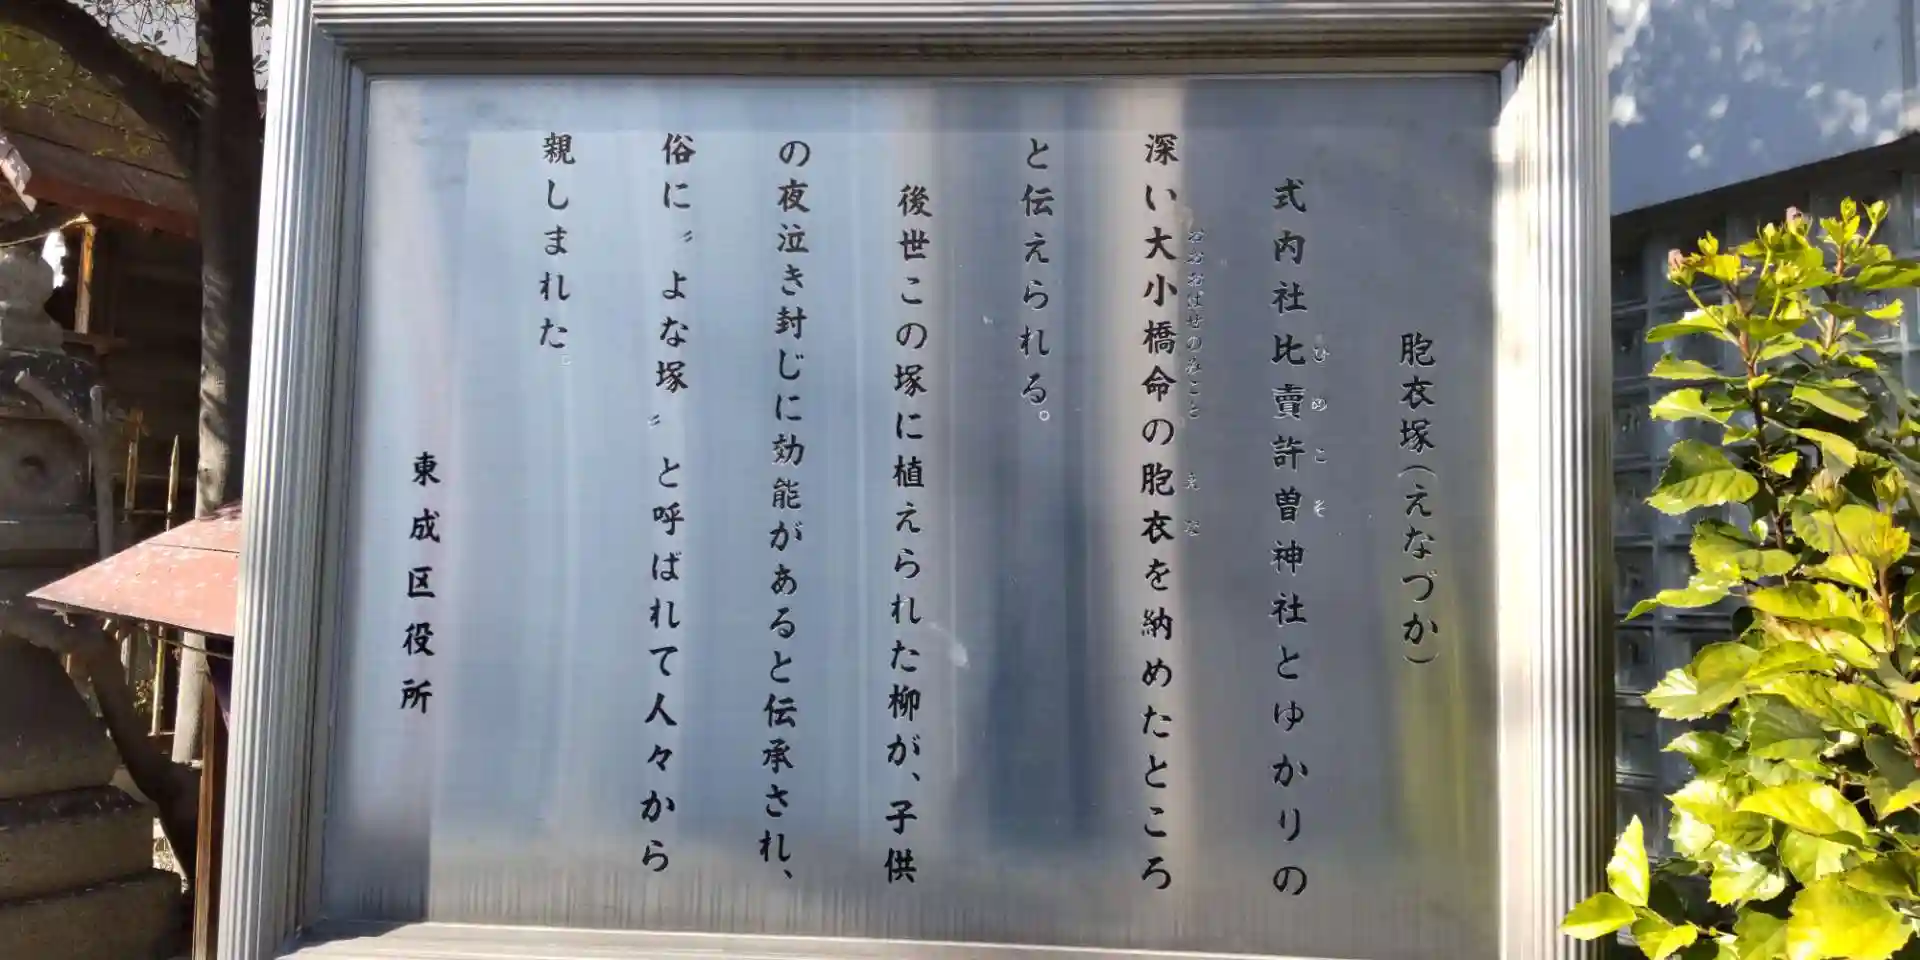 胞衣塚(えなづか)
式内社比賣許曽神社とゆかりの
深い大小橋命の胞衣を納めたところ
と伝えられる。
後世この塚に植えられた柳が、子供
の夜泣き封じに効能があると伝承され、
俗に〝よな塚〟と呼ばれて人々から
親しまれた。
東成区役所